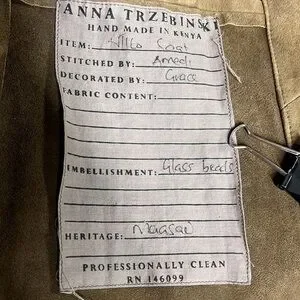 ANNA TRZEBINSKI
HAND MADE IN KENYA
ITEM: Coat
STITCHED BY: Amedi
DECORATED BY: Grace
FABRIC CONTENT:
EMBELLISHMENT: Glass beads
HERITAGE: Maasai
PROFESSIONALLY CLEAN
RN 146099